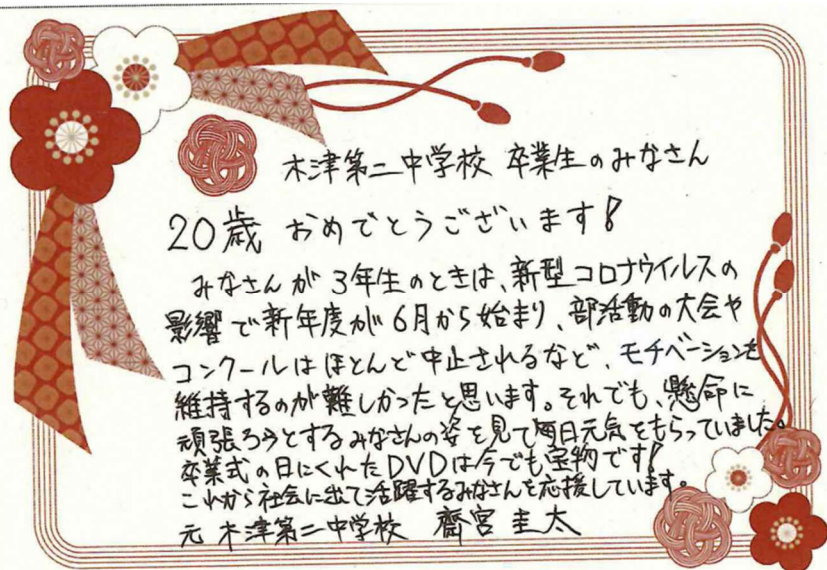 木津第二中学校 卒業生のみなさん
20歳 おめでとうございます!
みなさんが3年生のときは、新型コロナウイルスの
影響で新年度が6月から始まり、部活動の大会や
コンクールはほとんど中止されるなど、モチベーションを
維持するのが難しかったと思います。それでも、懸命に
頑張ろうとするみなさんの姿を見て毎日元気をもらっていました。
卒業式の日にくれたDVDは今でも宝物です!
これから社会に出て活躍するみなさんを応援しています。
元 木津第二中学校 齋宮 圭太